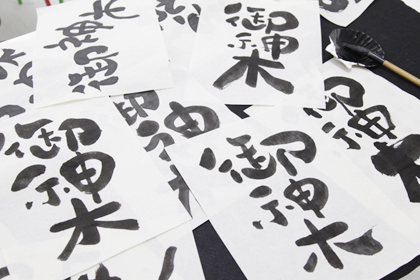 御神木
御神木
御神木
御神木
御神
神